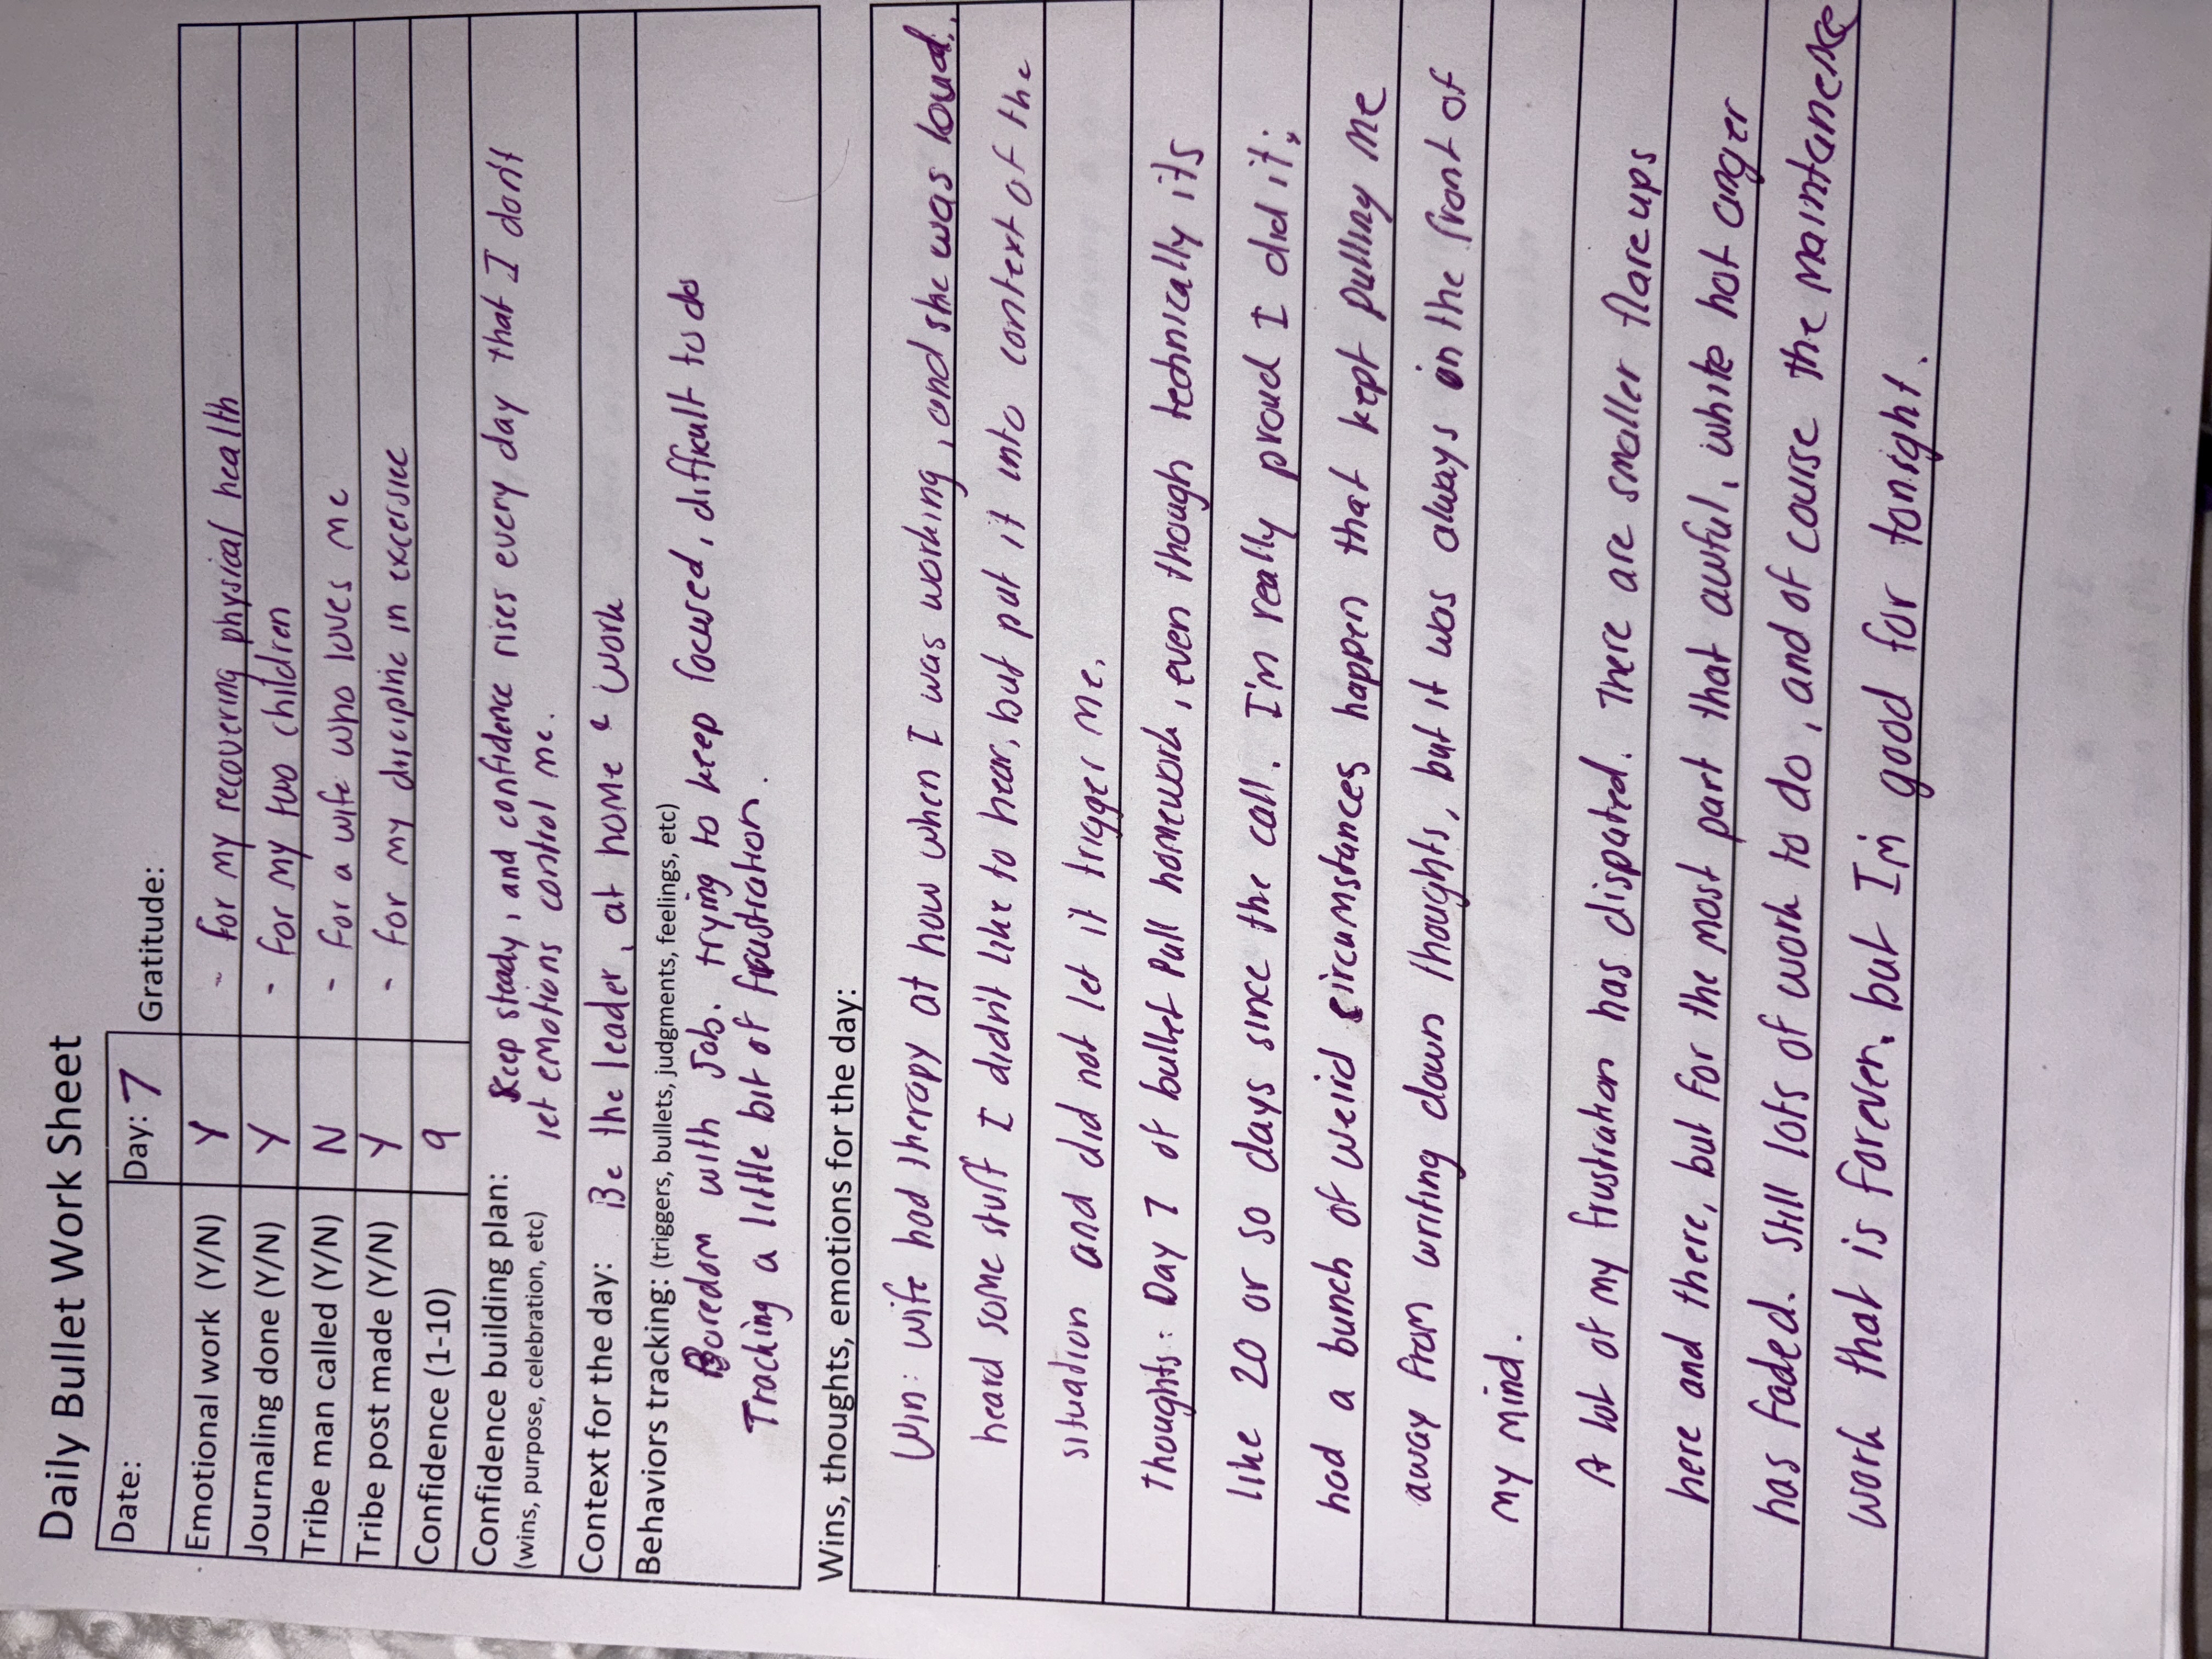 Daily Bullet Work Sheet
Date: Day: 7 Gratitude:
Emotional work (Y/N) Y - for my recovering physical health
Journaling done (Y/N) Y - for my two children
Tribe man called (Y/N) N - for a wife who loves me
Tribe post made (Y/N) Y - for my discipline in excersice
Confidence (1-10) 9
Confidence building plan: Keep steady, and confidence rises every day that I don't
(wins, purpose, celebration, etc) let emotions control me.
Context for the day: Be the leader, at home & work
Behaviors tracking: (triggers, bullets, judgments, feelings, etc)
Boredom with job. trying to keep focused, difficult to do
Tracking a little bit of frustration.
Wins, thoughts, emotions for the day:
Win: wife had therapy at now when I was working, and she was loud.
heard some stuff I didn't like to hear, but put it into context of the
situation and did not let it trigger me.
Thoughts: Day 7 of bullet Pull homework, even though technically its
like 20 or so days since the call. I'm really proud I did it;
had a bunch of weird circumstances happen that kept pulling me
away from writing down thoughts, but it was always in the front of
my mind.
A lot of my frustration has dispated. There are smaller flare ups
here and there, but for the most part that awful, white hot anger
has faded. Still lots of work to do, and of course the maintanence
work that is forever, but I'm good for tonight.